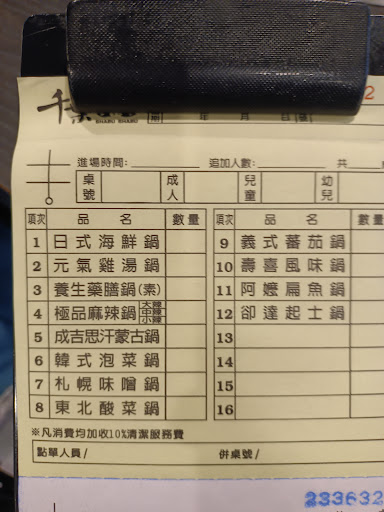 千葉
SHABU SHABU
年 月 日
2
進場時間: 追加人數: 共
桌號 成人 兒童 幼兒
項次 品名 數量 項次 品名 數量
1 日式海鮮鍋 9 義式蕃茄鍋
2 元氣雞湯鍋 10 壽喜風味鍋
3 養生藥膳鍋(素) 11 阿嬤扁魚鍋
4 極品麻辣鍋 大辣 中辣 小辣 12 卻達起士鍋
5 成吉思汗蒙古鍋 13
6 韓式泡菜鍋 14
7 札幌味噌鍋 15
8 東北酸菜鍋 16
※凡消費均加收10%清潔服務費
點單人員/ 併桌號/
233632